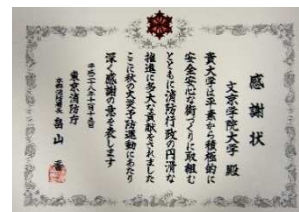 感謝状
文京学院大学 殿
貴大学は平素から積極的に
安全安心な街づくりに取組む
とともに消防行政の円滑な
推進に多大な貢献をされました
ここに秋の火災予防運動にあたり
深く感謝の意を表します
平成二八年十一月十五日
東京消防庁
本郷消防署長 畠山